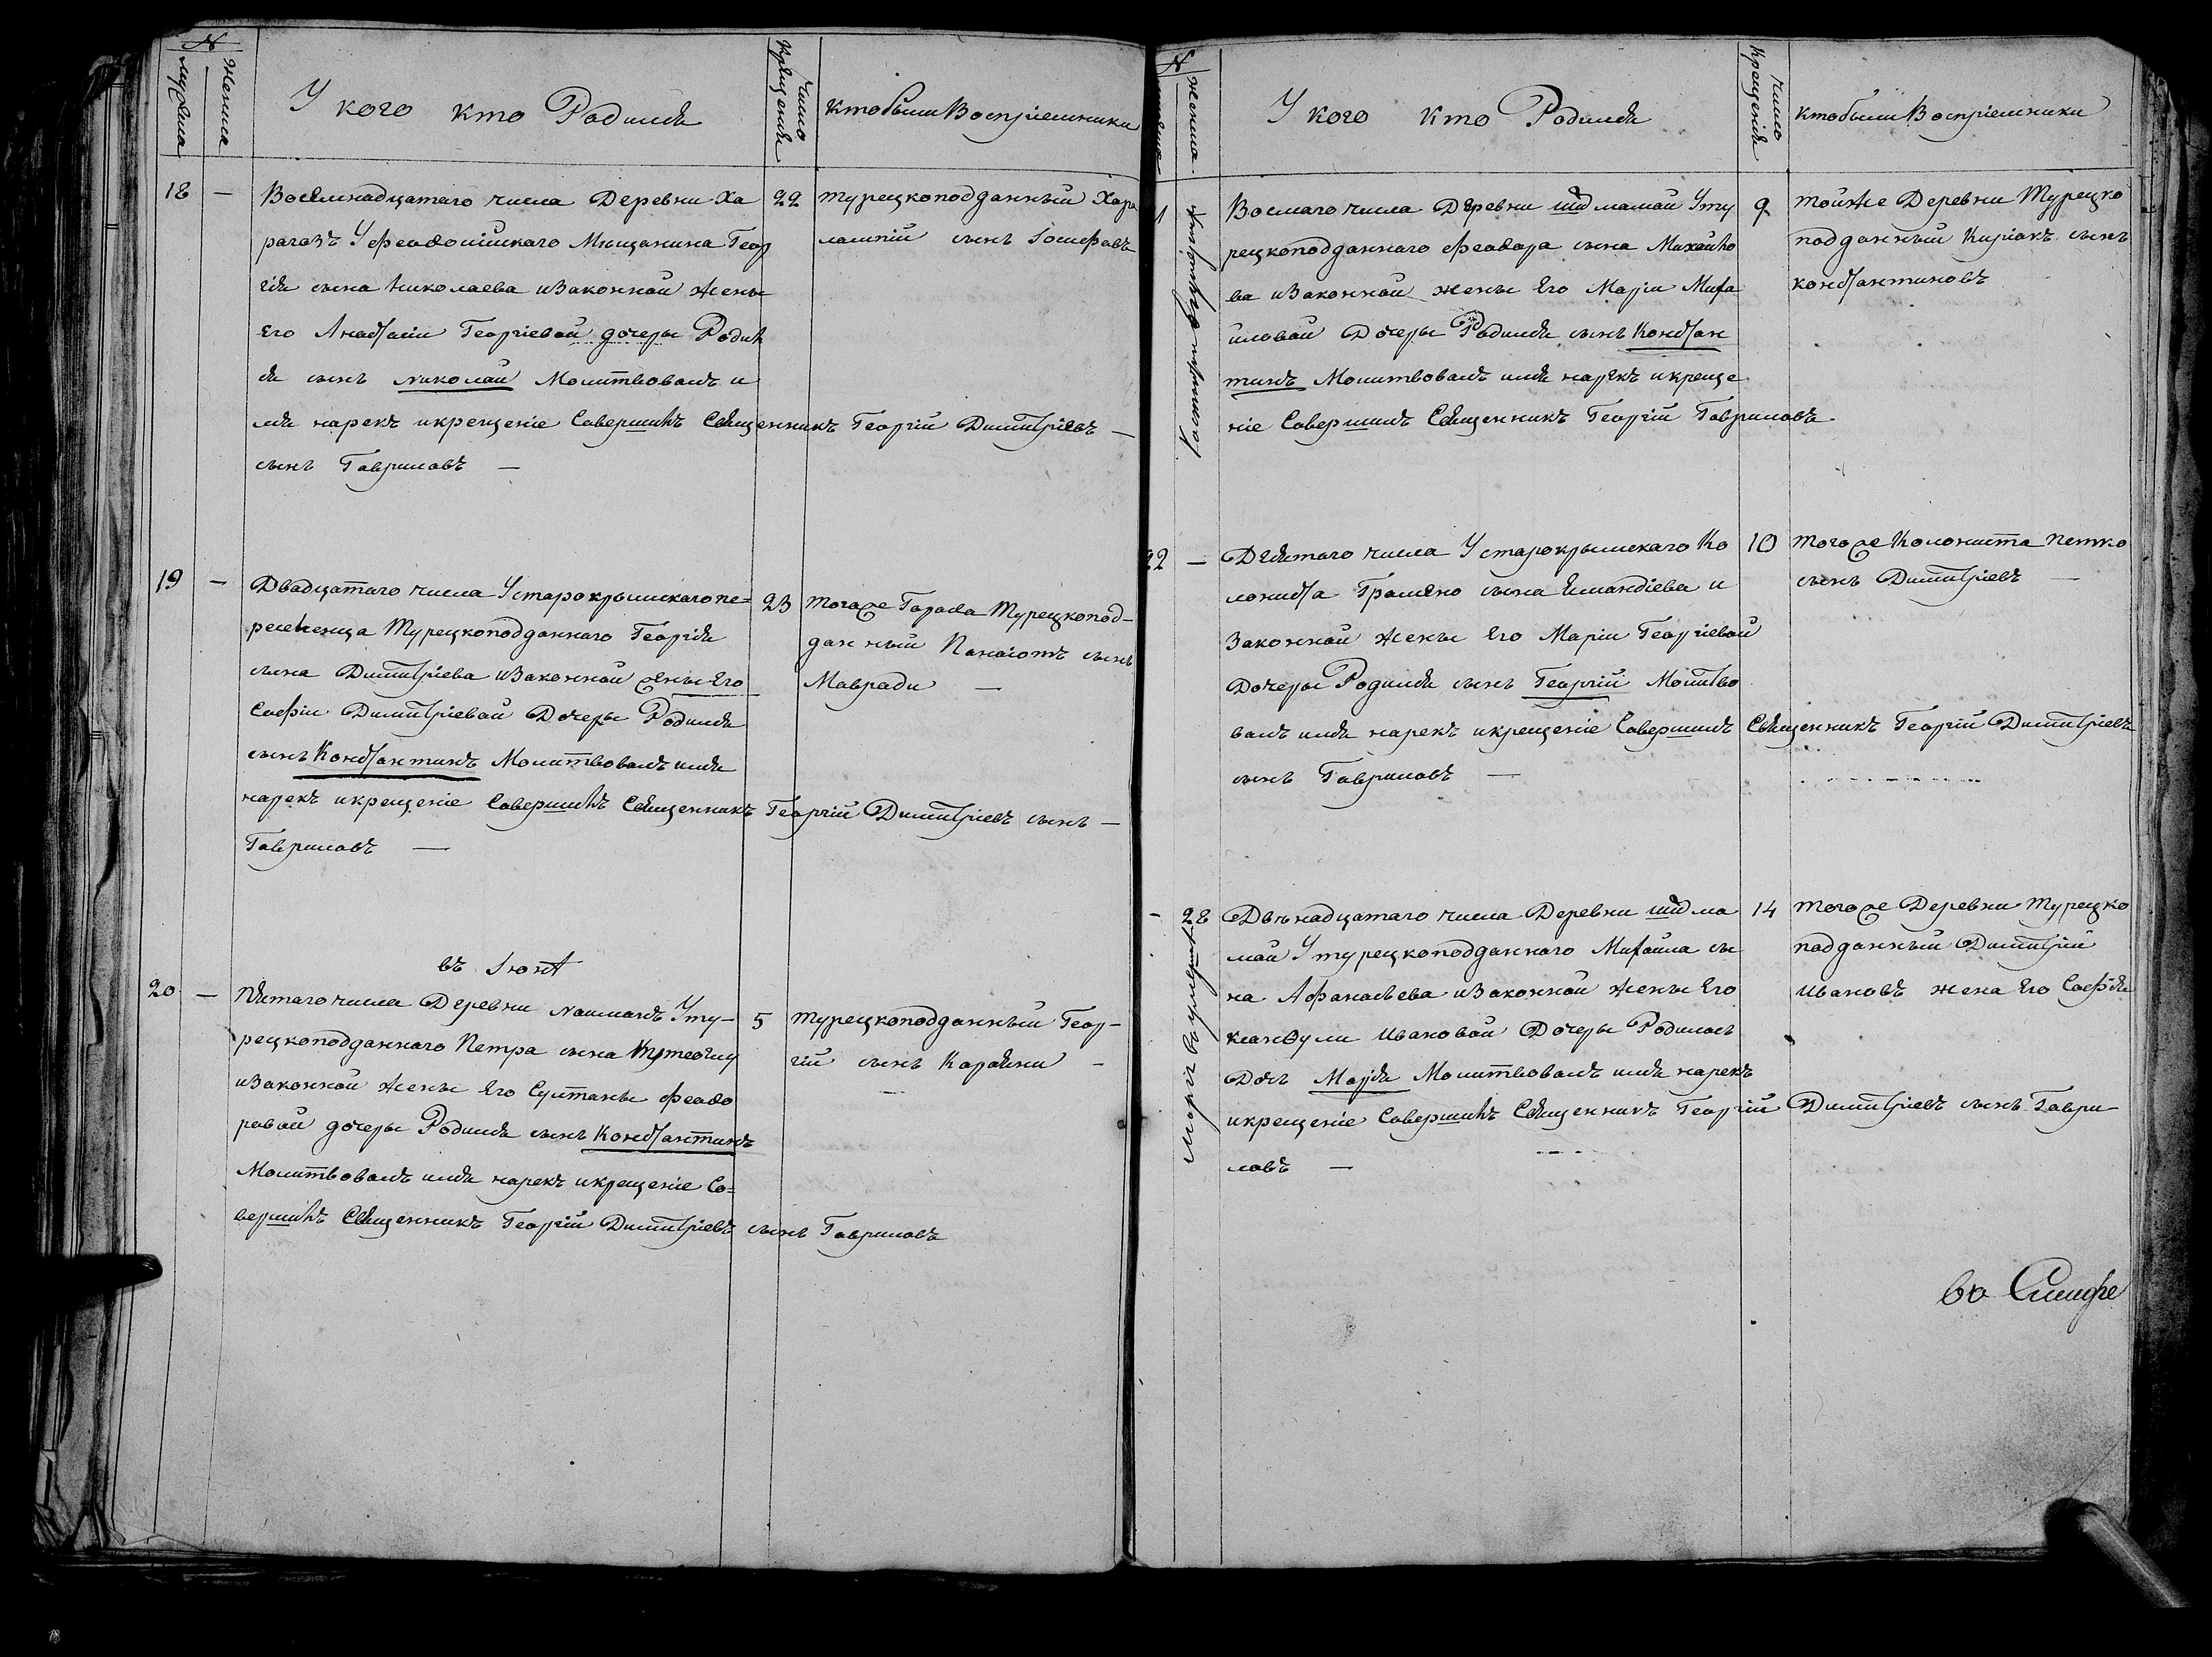 N
мужеска
женска
У кого кто Родился
Число
Крещения
кто были Восприемники
18 — Восемнадцатаго числа Деревни Ха
рагозъ У Феодосійскаго Мещанина Геор
гія сына Николаева изаконной жены
Его Анастасіи Георгіевой дочеры Родил
ся сынъ Николай Молитвовалъ и
мя нарекъ икрещеніе Совершилъ Священникъ Георгій Димитріевъ —
сынъ Гавриловъ —
22 турецкоподданный Хара
лампій сынъ Іосифовъ
19 — Двадцатаго числа Устарокрымскаго пе=
реселенца Турецкоподданнаго Георгія
сына Димитріева изаконной жены Его
Софіи Димитріевой Дочеры Родился
сынъ Константинъ Молитвовалъ имя
нарекъ икрещеніе Совершилъ Священникъ Георгій Димитріевъ сынъ —
Гавриловъ —
23 тогоже Города Турецкопод-
данный Панаіотъ сынъ
Мавради —
въ Іюнѣ
20 — Пятаго числа Деревни Найманъ Уту-
рецкоподданнаго Петра сына
изаконной жены Его Султаны Феодо
ровой дочеры Родился сынъ Константинъ
Молитвовалъ имя нарекъ икрещеніе Со=
вершилъ Священникъ Георгій Димитріевъ сынъ Гавриловъ
5 турецкоподданный Геор-
гій сынъ —
N
женска
У кого кто Родился
Число
Крещенія
кто были Восприемники
1 Восмаго числа Деревни Шидмамай Уту
рецкоподданнаго Феодора сына Михайло
ва изаконной жены Его Маріи Миха
иловой Дочеры Родился сынъ Констан
тинъ Молитвовалъ имя нарекъ икреще
ніе Совершилъ Священникъ Георгій Гавриловъ
9 тойже Деревни Турецко
подданный Киріакъ сынъ
константиновъ
22 — Девятаго числа Устарокрымскаго Ко
лониста сына и
Законной жены Его Маріи Георгіевой
Дочеры Родился сынъ Георгій Молитво
валъ имя нарекъ икрещеніе Совершилъ Священникъ Георгій Димитріевъ
сынъ Гавриловъ —
10 тогоже Колониста Петко
сынъ Димитріевъ —
- 28 Двенадцатаго числа Деревни Шидма
май Утурецкоподданнаго Михаила сы
на Афанасьева изаконной жены Его
Ивановой Дочеры Родилась
Дочь Марія Молитвовалъ имя нарекъ
икрещеніе Совершилъ Священникъ Георгій Димитріевъ сынъ Гаври-
ловъ —
14 тогоже Деревни Турецко
подданный Димитрій
Ивановъ жена Его Софія